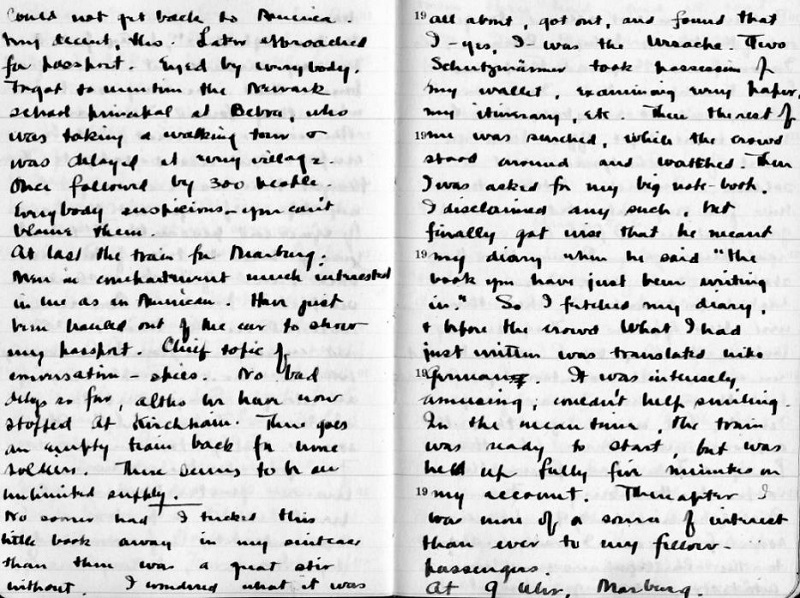 Could not get back to America
my decent, this. Later approached
for passport. Eyed by everybody.
Forgot to mention the Newark
school principal at Bebra, who
was taking a walking tour &
was delayed at every village.
Once followed by 300 people.
Everybody suspicious – you can't
blame them.
At last the train for Marburg.
Men in compartment much interested
in me as an American. Have just
been hauled out of the car to show
my passport. Chief topic of
conversation – spies. No bad
delays so far, altho we have now
stopped at Kirchhain. There goes
an empty train back for more
soldiers. There seems to be an
unlimited supply.
No sooner had I tucked this
little book away in my suitcase
than there was a great stir
without. I wondered what it was
19
all about, got out, and found that
I – yes, I – was the Ursache. Two
Schutzmänner took possession of
my wallet, examining every paper,
my itinerary, etc. Then the rest of
19
me was searched, while the crowd
stood around and watched. Then
I was asked for my big note-book.
I disclaimed any such, but
finally got wise that he meant
19
my diary when he said "the
book you have just been writing
in." So I fetched my diary,
& before the crowd what I had
just written was translated into
19
German. It was intensely
amusing; couldn't help smiling.
In the mean time, the train
was ready to start, but was
held up fully five minutes on
19
my account. Thereafter I
was more of a source of interest
than ever to my fellow-
passengers.
At 9 Uhr, Marburg